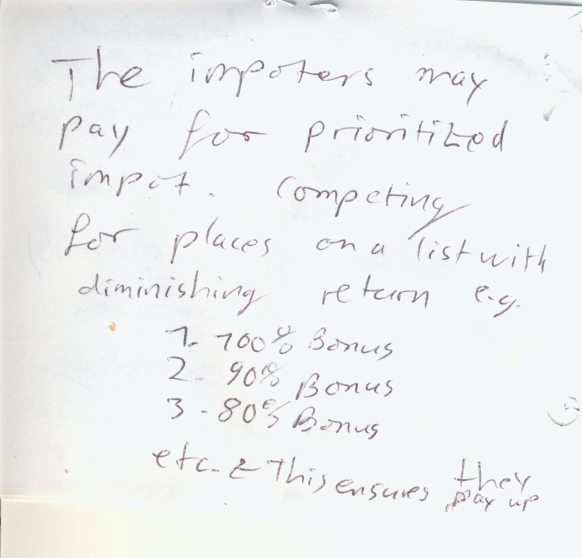 The impoters may
pay for prioritized
impot. Competing
for places on a list with
diminishing return e.g.
1- 100% Bonus
2- 90% Bonus
3 - 80% Bonus
etc. & This ensures they
pay up